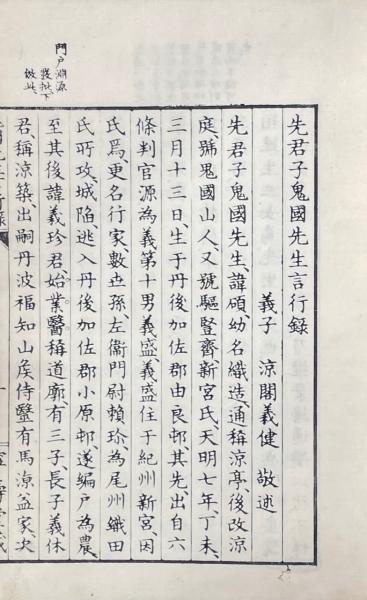 先君子鬼國先生言行錄
義子 涼閣義健 敬述
先君子鬼國先生、諱碩、幼名織造、通稱涼亭、後改涼
庭、號鬼國山人、又號驅豎齋、新宮氏、天明七年、丁未、
三月十三日、生于丹後加佐郡由良邨、其先、出自六
條判官源為義第十男義盛、義盛住于紀州新宮、因
氏焉、更名行家、數世孫、左衞門尉賴珍、為尾州織田
氏所攻、城陷逃入丹後加佐郡小原邨、遂編戶為農、
至其後諱義珍君、始業醫稱道廓、有三子、長子義休
君、稱涼築、出嗣丹波福知山矦侍毉有馬涼益家、次
門戶淵源
從此